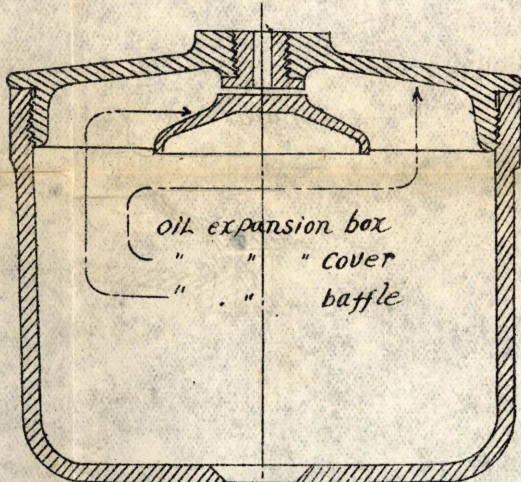 oil expansion box
" " " cover
" . " baffle